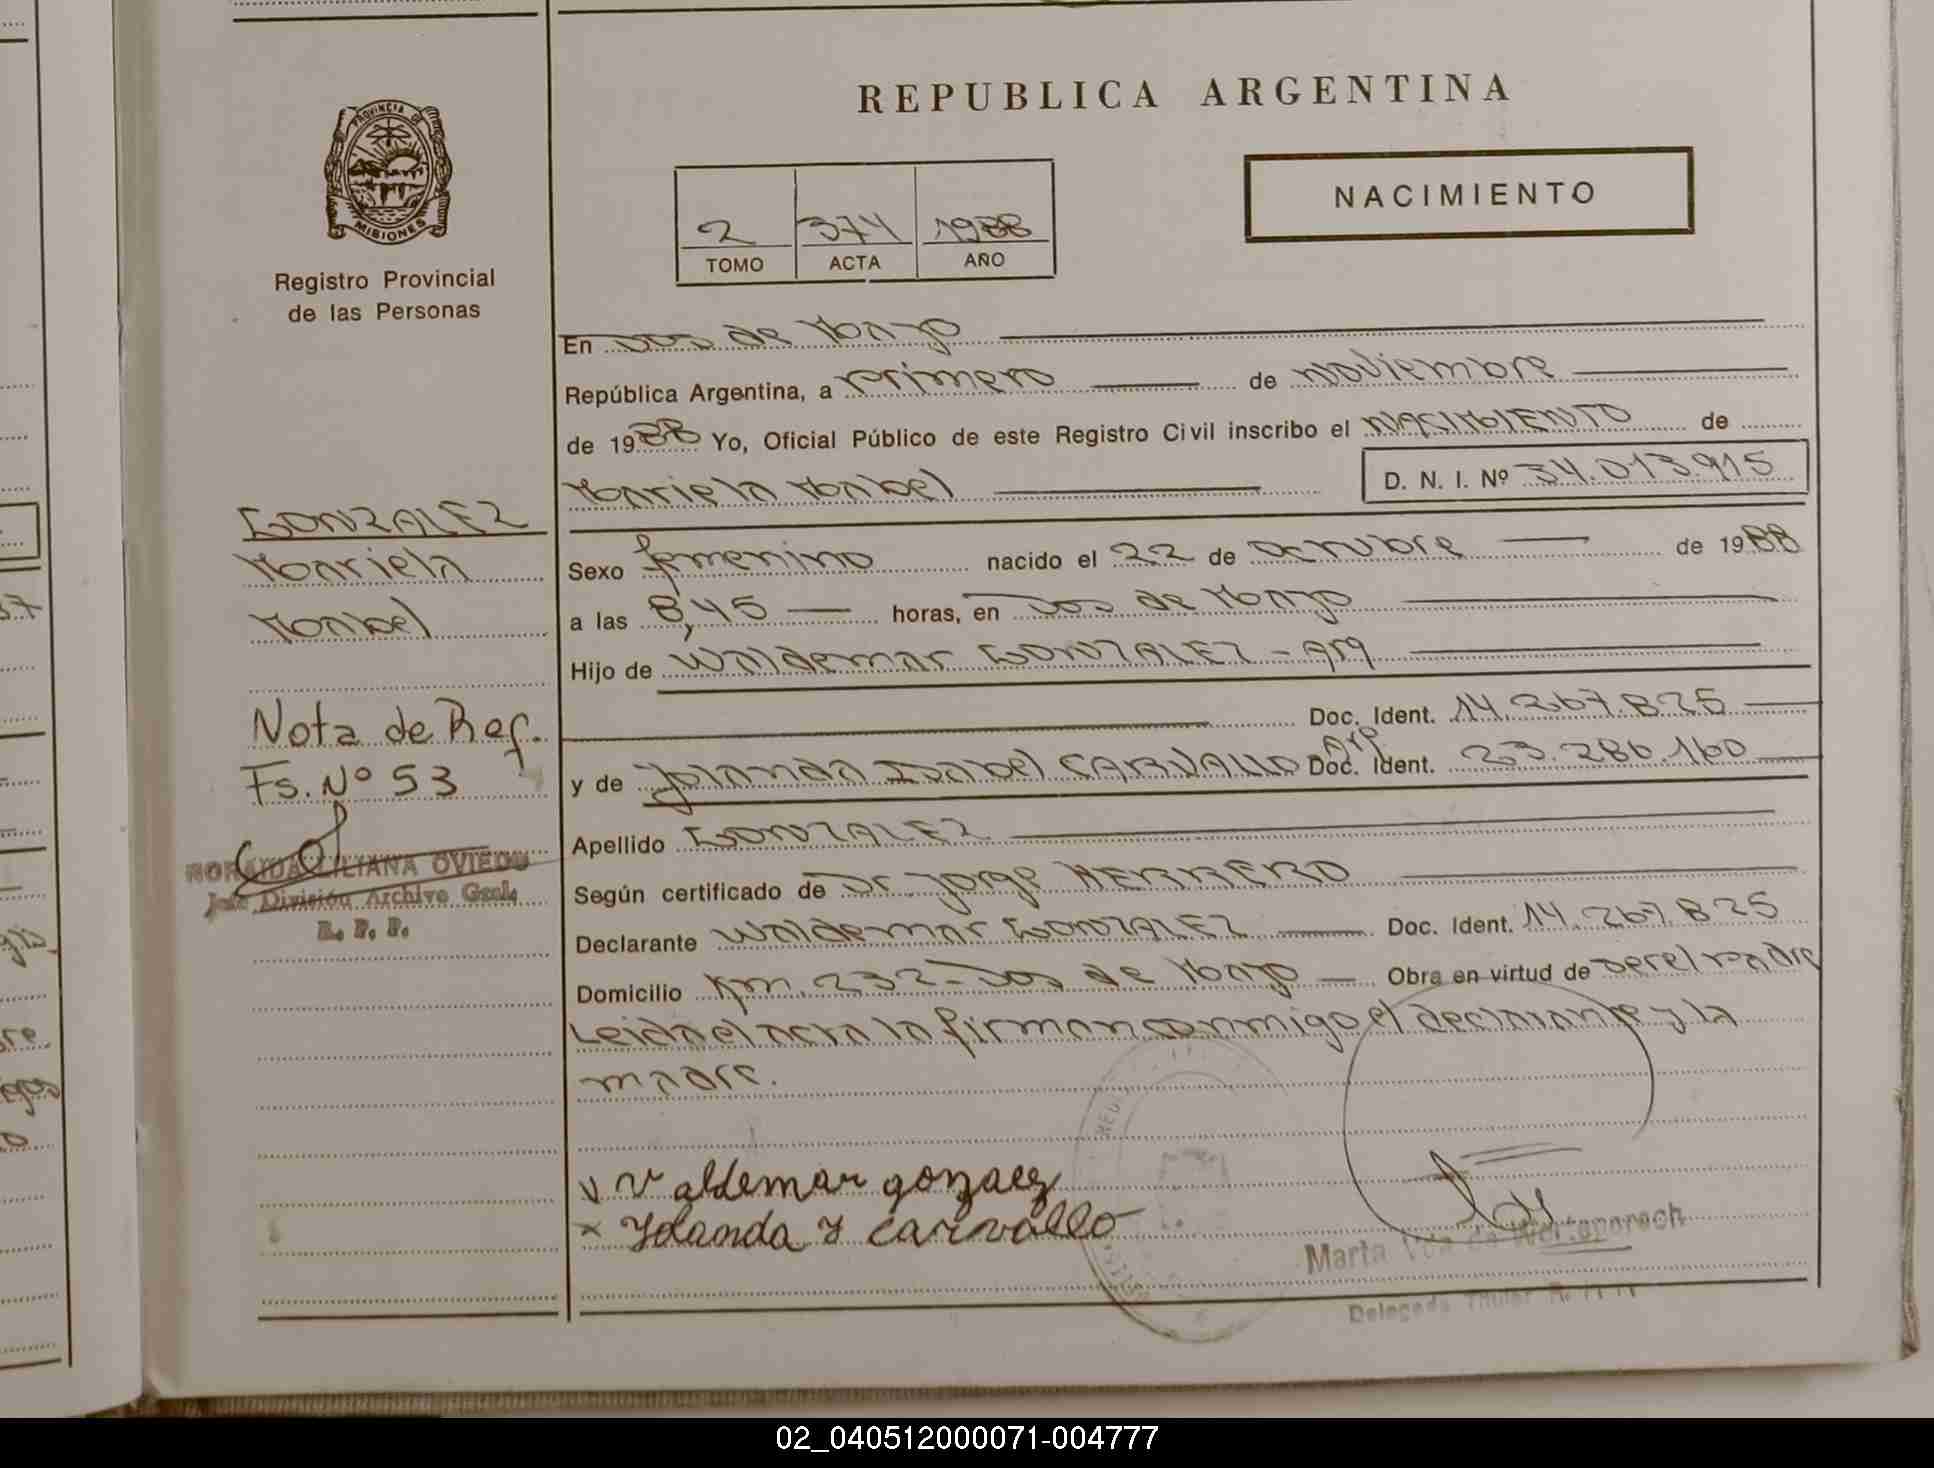 REPUBLICA ARGENTINA
PROVINCIA DE
MISIONES
Registro Provincial
de las Personas
NACIMIENTO
2 374 1988
TOMO ACTA AÑO
En Dos de Mayo
República Argentina, a primero de noviembre
de 1988 Yo, Oficial Público de este Registro Civil inscribo el NACIMIENTO de
Mariela Mabel D. N. I. Nº 34.013.915
Sexo femenino nacido el 22 de octubre de 1988
a las 8,45 horas, en Dos de Mayo
Hijo de Waldemar GONZALEZ - Arg
Doc. Ident. 14.267.825
y de Yolanda Isabel CARVALLO Arg Doc. Ident. 23.286.160
Apellido GONZALEZ
Según certificado de Dr. Jorge HERRERO
Declarante Waldemar GONZALEZ Doc. Ident. 14.267.825
Domicilio Km. 232 - Dos de Mayo Obra en virtud de ser el padre
Leida el acta la firman conmigo el declarante y la
madre.
Valdemar gonzaez
x Yolanda Y carvallo
Marta Vda de
Delegada Titular R. P. P.
GONZALEZ
Mariela
Mabel
Nota de Ref.
Fs. Nº 53
NORAIDA LILIANA OVIEDO
Jefe División Archivo Gral.
R. P. P.
02_040512000071-004777